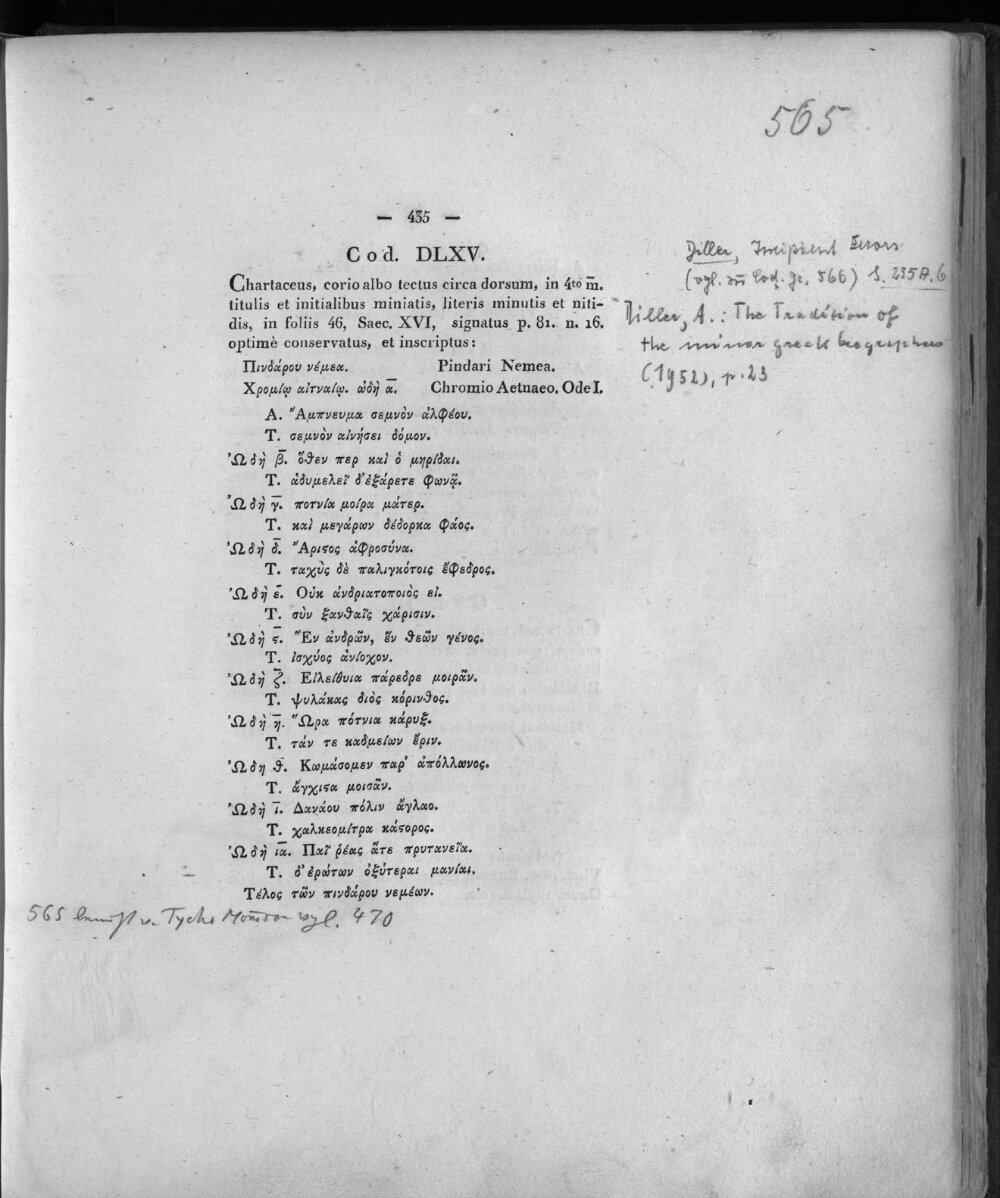 565
— 435 —
Cod. DLXV.
Chartaceus, corio albo tectus circa dorsum, in 4to m̅.
titulis et initialibus miniatis, literis minutis et niti-
dis, in foliis 46, Saec. XVI, signatus p. 81. n. 16.
optimè conservatus, et inscriptus:
Πινδάρου νέμεα. Pindari Nemea.
Χρομίῳ αἰτναίῳ. ὠδὴ α̅. Chromio Aetnaeo. Ode I.
Α. Ἄμπνευμα σεμνὸν ἀλφέου.
Τ. σεμνὸν αἰνήσει δόμον.
Ὠδὴ β̅. ὅθεν περ καὶ ὁ μηρίδαι.
Τ. ἁδυμελεῖ δ'ἐξάρετε φωνᾷ.
Ὠδὴ γ̅. ποτνία μοίρα μάτερ.
Τ. καὶ μεγάρων δέδορκα φάος.
Ὠδὴ δ̅. Ἄριϛος ἀφροσύνα.
Τ. ταχὺς δὲ παλιγκότοις ἔφεδρος.
Ὠδὴ ε̅. Οὐκ ἀνδριατοποιὸς εἰ.
Τ. σὺν ξανθαῖς χάρισιν.
Ὠδὴ ϛ̅. Ἓν ἀνδρῶν, ἓν θεῶν γένος.
Τ. ἰσχύος ἁνίοχον.
Ὠδὴ ζ̅. Εἰλείθυια πάρεδρε μοιρᾶν.
Τ. ψυλάκας διὸς κόρινθος.
Ὠδὴ η̅. Ὥρα πότνια κάρυξ.
Τ. τάν τε καδμείων ἔριν.
Ὠδη θ̅. Κωμάσομεν παρ' ἀπόλλωνος.
Τ. ἄγχιϛα μοισᾶν.
Ὠδὴ ι̅. Δανάου πόλιν ἄγλαο.
Τ. χαλκεομίτρα κάϛορος.
Ὠδὴ ι̅α̅. Παῖ ῥέας ἅτε πρυτανεῖα.
Τ. δ'ἐρώτων ὀξύτεραι μανίαι.
Τέλος τῶν πινδάρου νεμέων.
Diller, Incipient Errors
(vgl. zu Cod. gr. 566) S. 235 A. 6
Diller, A.: The Tradition of
the minor greek Geographers
(1952), p. 23
565 v. Tycho vgl. 470